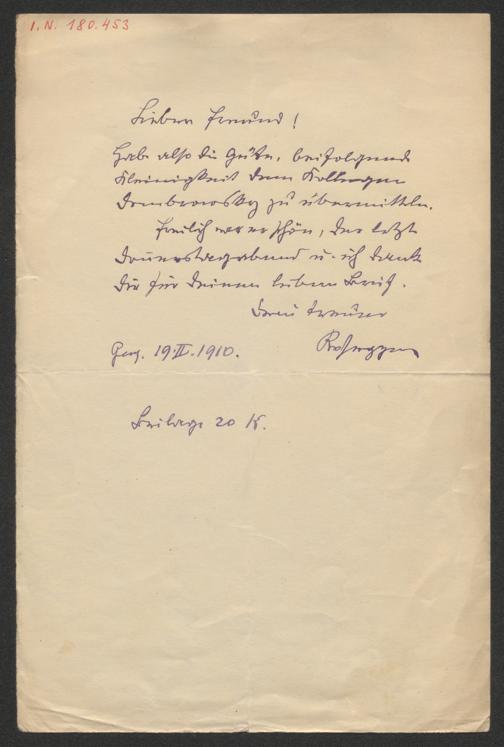 I.N. 180.453
Lieber Freund!
Habe also die Güte, beifolgende
Kleinigkeit dem Kollegen
Dombrowsky zu übermitteln.
Freilich war er schön, der letzte
Donnerstagabend u. ich danke
Dir für Deinen lieben Brief.
Dein treuer
Rosegger
Graz, 19.II.1910.
Beilage 20 K.